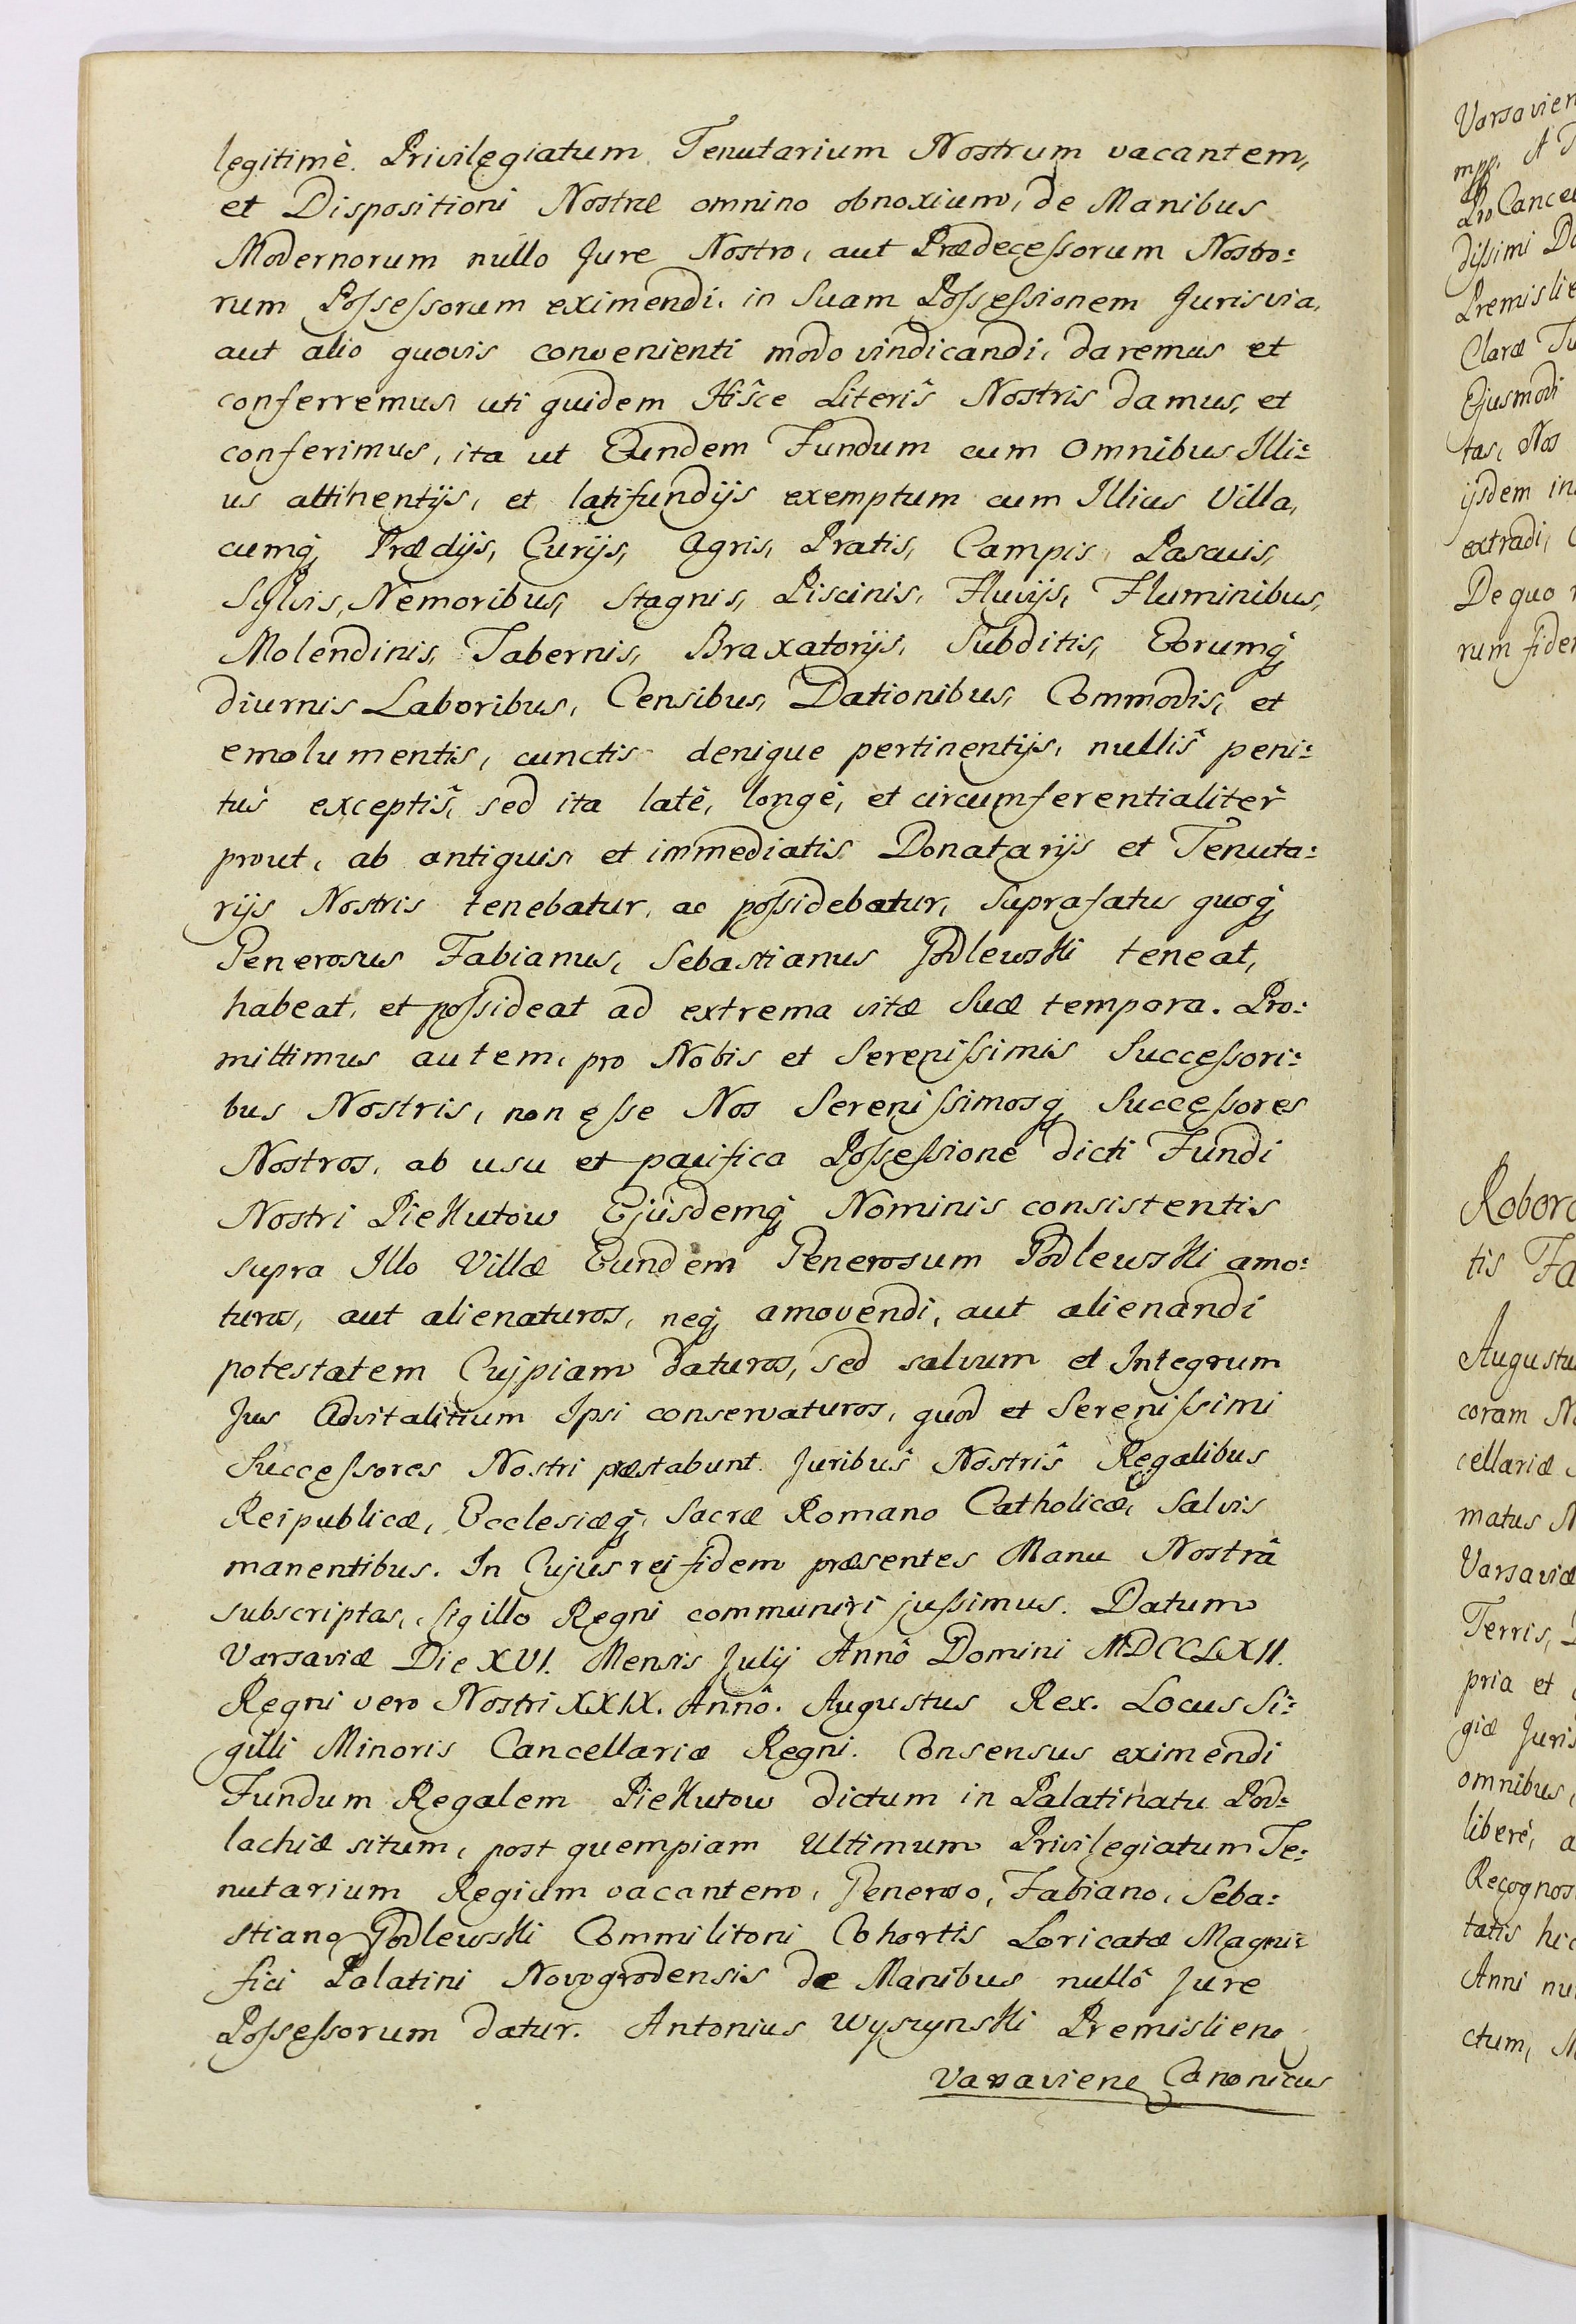 legitimè. Privilegiatum Tenutarium Nostrum vacantem,
et Dispositioni Nostræ omnino obnoxium, de Manibus
Modernorum nullo Jure Nostro, aut Prædecessorum Nostro=
rum Possessorum eximendi, in Suam Possessionem Juris via,
aut alio quovis convenienti modo vindicandi, daremus et
conferremus, uti quidem Hîsce Literîs Nostris damus, et
conferimus, ita ut Eundem Fundum cum Omnibus Illi=
us attinentijs, et latifundijs exemptum cum Illius Villa,
cumq, Prædijs, Curijs, Agris, Pratis, Campis, Pascuis,
Sylvis, Nemoribus, Stagnis, Piscinis, Fluvijs, Fluminibus,
Molendinis, Tabernis, Braxatorijs, Subditis, Eorumq,
diurnis Laboribus, Censibus, Dationibus, Commodis, et
emolumentis, cunctis denique pertinentijs, nullîs peni=
tus exceptîs, sed ita latè, longè, et circumferentialitèr
prout, ab antiquis et immediatis Donatarijs et Tenuta=
rijs Nostris tenebatur, ac possidebatur, Suprafatus quoq,
Generosus Fabianus, Sebastianus Godlewski teneat,
habeat, et possideat ad extrema vitæ Suæ tempora. Pro=
mittimus autem, pro Nobis et Serenissimis Successori=
bus Nostris, non esse Nos Serenissimosq, Successores
Nostros, ab usu et pacifica Possessione dicti Fundi
Nostri Piekutow Ejusdemq, Nominis consistentis
supra Illo Villæ Eundem Generosum Godlewski amo=
turos, aut alienaturos, neq, amovendi, aut alienandi
potestatem Cujpiam daturos, sed salvum et Integrum
Jus Advitalitium Ipsi conservaturos, quod et Serenissimi
Successores Nostri præstabunt. Juribus Nostrîs Regalibus
Reipublicæ, Ecclesiæq, Sacræ Romano Catholicæ, Salvis
manentibus. In Cujus rei fidem præsentes Manu Nostrâ
subscriptas, Sigillo Regni communiri jussimus. Datum
Varsaviæ Die XVI. Mensis Julij Annô Domini MDCCLXII.
Regni vero Nostri XXIX. Annô. Augustus Rex. Locus Si=
gilli Minoris Cancellariæ Regni. Consensus eximendi
Fundum Regalem Piekutow dictum in Palatinatu Pod=
lachiæ situm, post quempiam Ultimum Privilegiatum Te=
nutarium Regium vacantem, Generoso, Fabiano, Seba=
stiano Godlewski Commilitoni Cohortis Loricatæ Magni=
fici Palatini Novogrodensis de Manibus nullô Jure
Possessorum datur. Antonius Wyszynski Premislien,
Varsavien, Canonicus
Varsavien
mpp. A
Pro Cance
dissimi Do
Premislie
Claræ
Ejusmodi
tas, Nos
ijsdem in
extradi,
De quo
rum fide
Robor
tis Fa
Augustu
coram
cellariæ
matus
Varsaviæ
Terris,
pria et
giæ Juris
omnibus,
liberè, a
Recognos
tatis hic
Anni nu
ctum, M